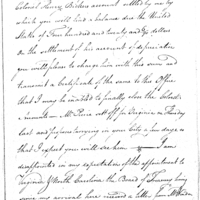 Colonel Harvey Birkes account settled by me by
which you will find a balance due the United
States of Four hundred and twenty and 78/90 dollars
on the settlement of his account of depreciation
you will please to charge him with this sum and
transmit a certificate of the same to this Office
that I may be enabled to finally close the Colonels
accounts Mr Pierce set off for Virginia on Tuesday
last and purposes tarrying in your City a few days so
that I expect you will see him — I am
disappointed in my expectation of the appointment to
Virginia & North Carolina the Board of Treasury having
since my arrival here received a letter from